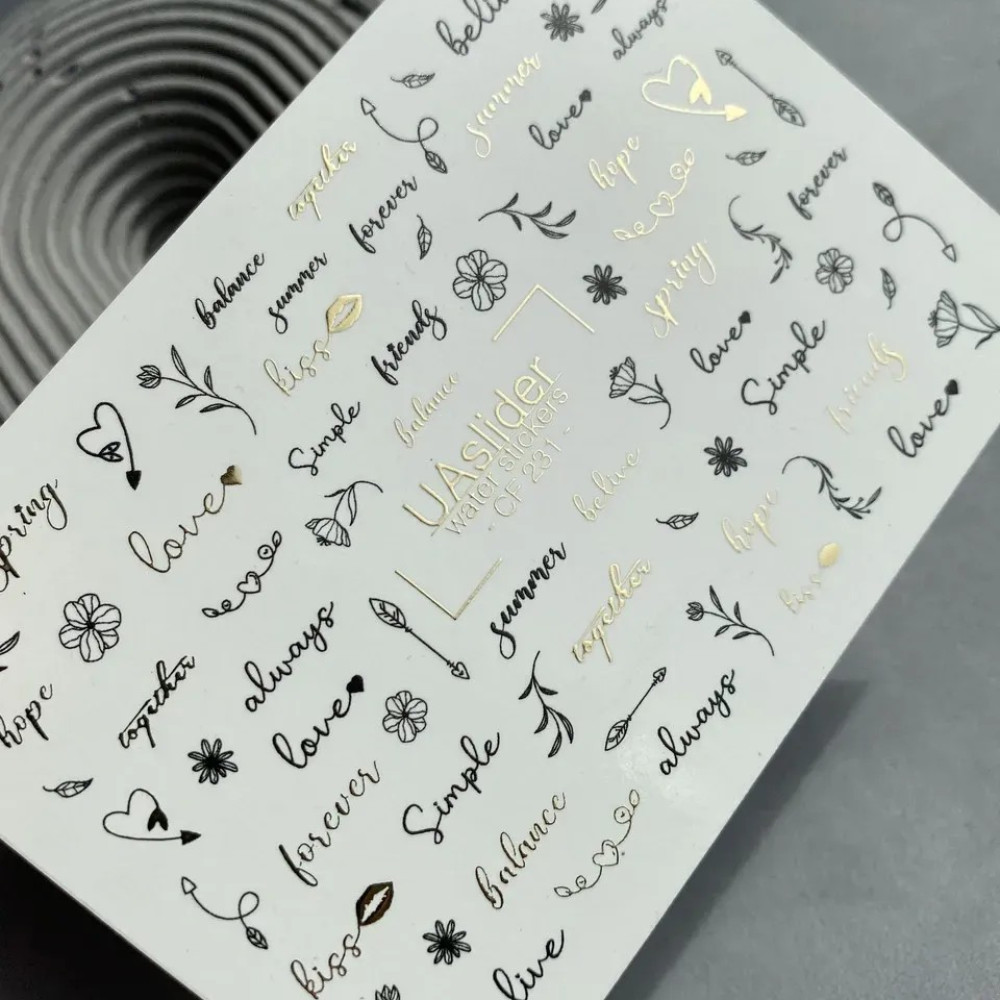 always
summer
love
together
hope
forever
forever
balance
summer
spring
kiss
friends
love
Simple
balance
friends
Simple
UAslider
water stickers
- CF 231 -
love
spring
love
belive
hope
summer
kiss
together
always
together
hope
love
always
Simple
forever
balance
kiss